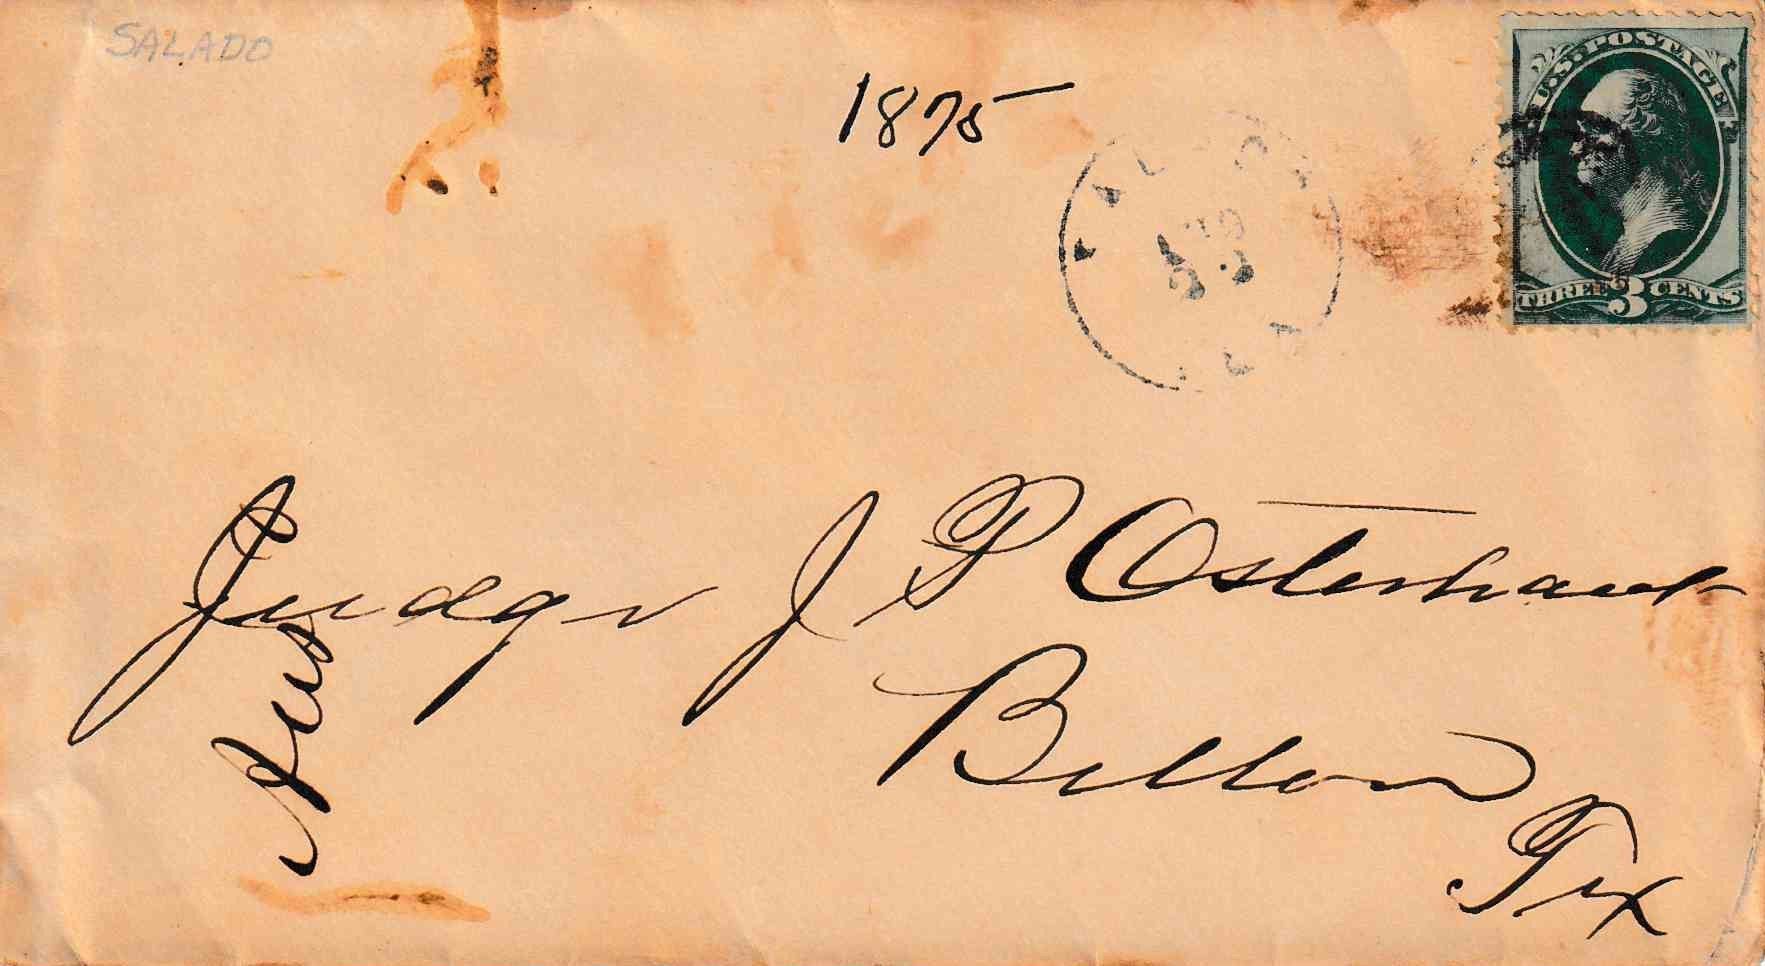 SALADO
1875
U.S. POSTAGE
THREE 3 CENTS
Judge J P Osterhaut
Belton
Tex